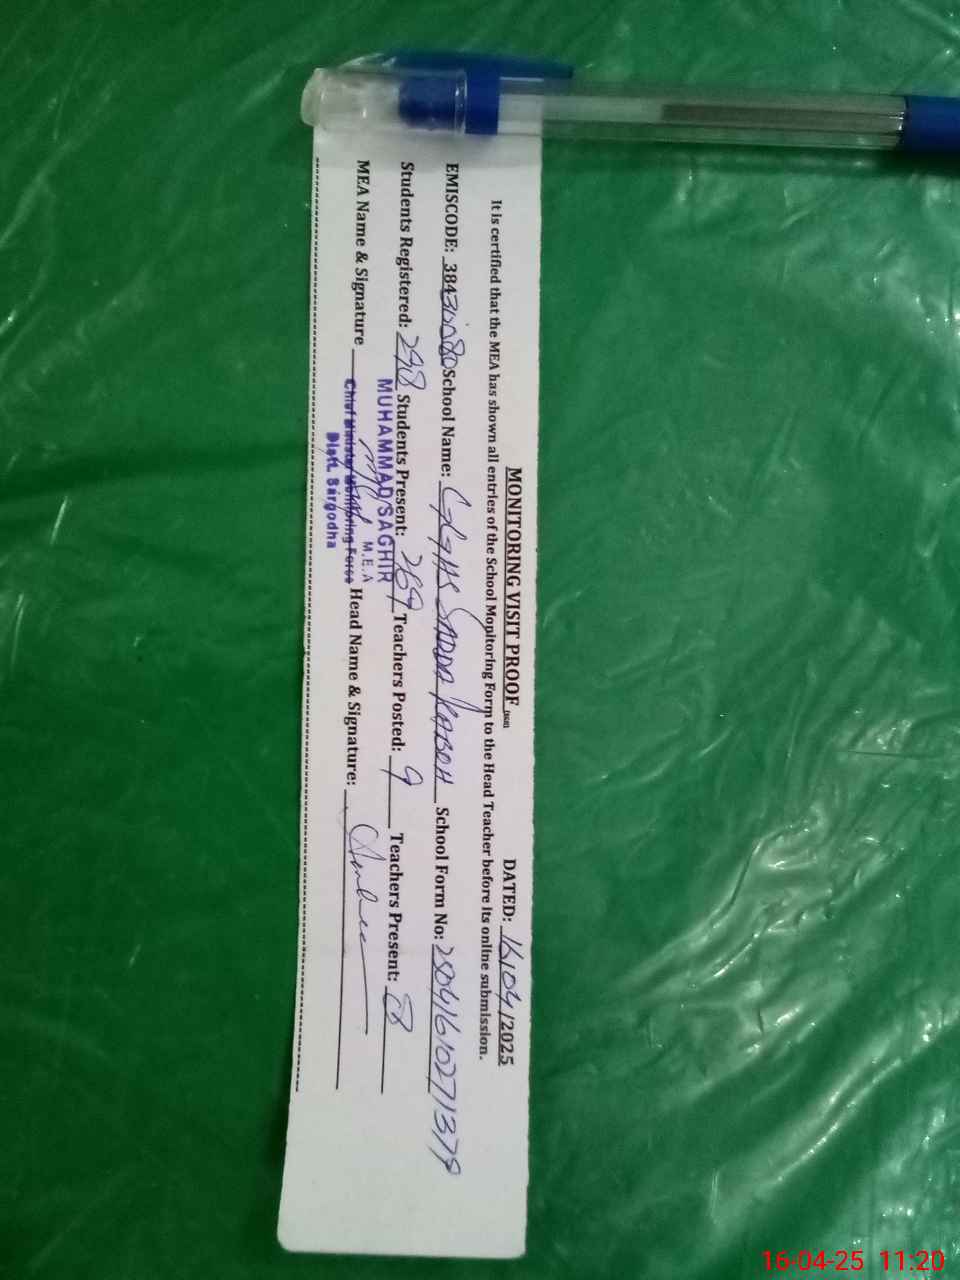 MONITORING VISIT PROOF DATED: 16/04/2025
It is certified that the MEA has shown all entries of the School Monitoring Form to the Head Teacher before its online submission.
EMISCODE: 384 School Name: SADDA KABOH School Form No:
Students Registered: 298 Students Present: 269 Teachers Posted: 9 Teachers Present: 8
MUHAMMAD SAGHIR
M.E.A
MEA Name & Signature Head Name & Signature:
Chief Minister Monitoring Force
Distt. Sargodha
16-04-25 11:20